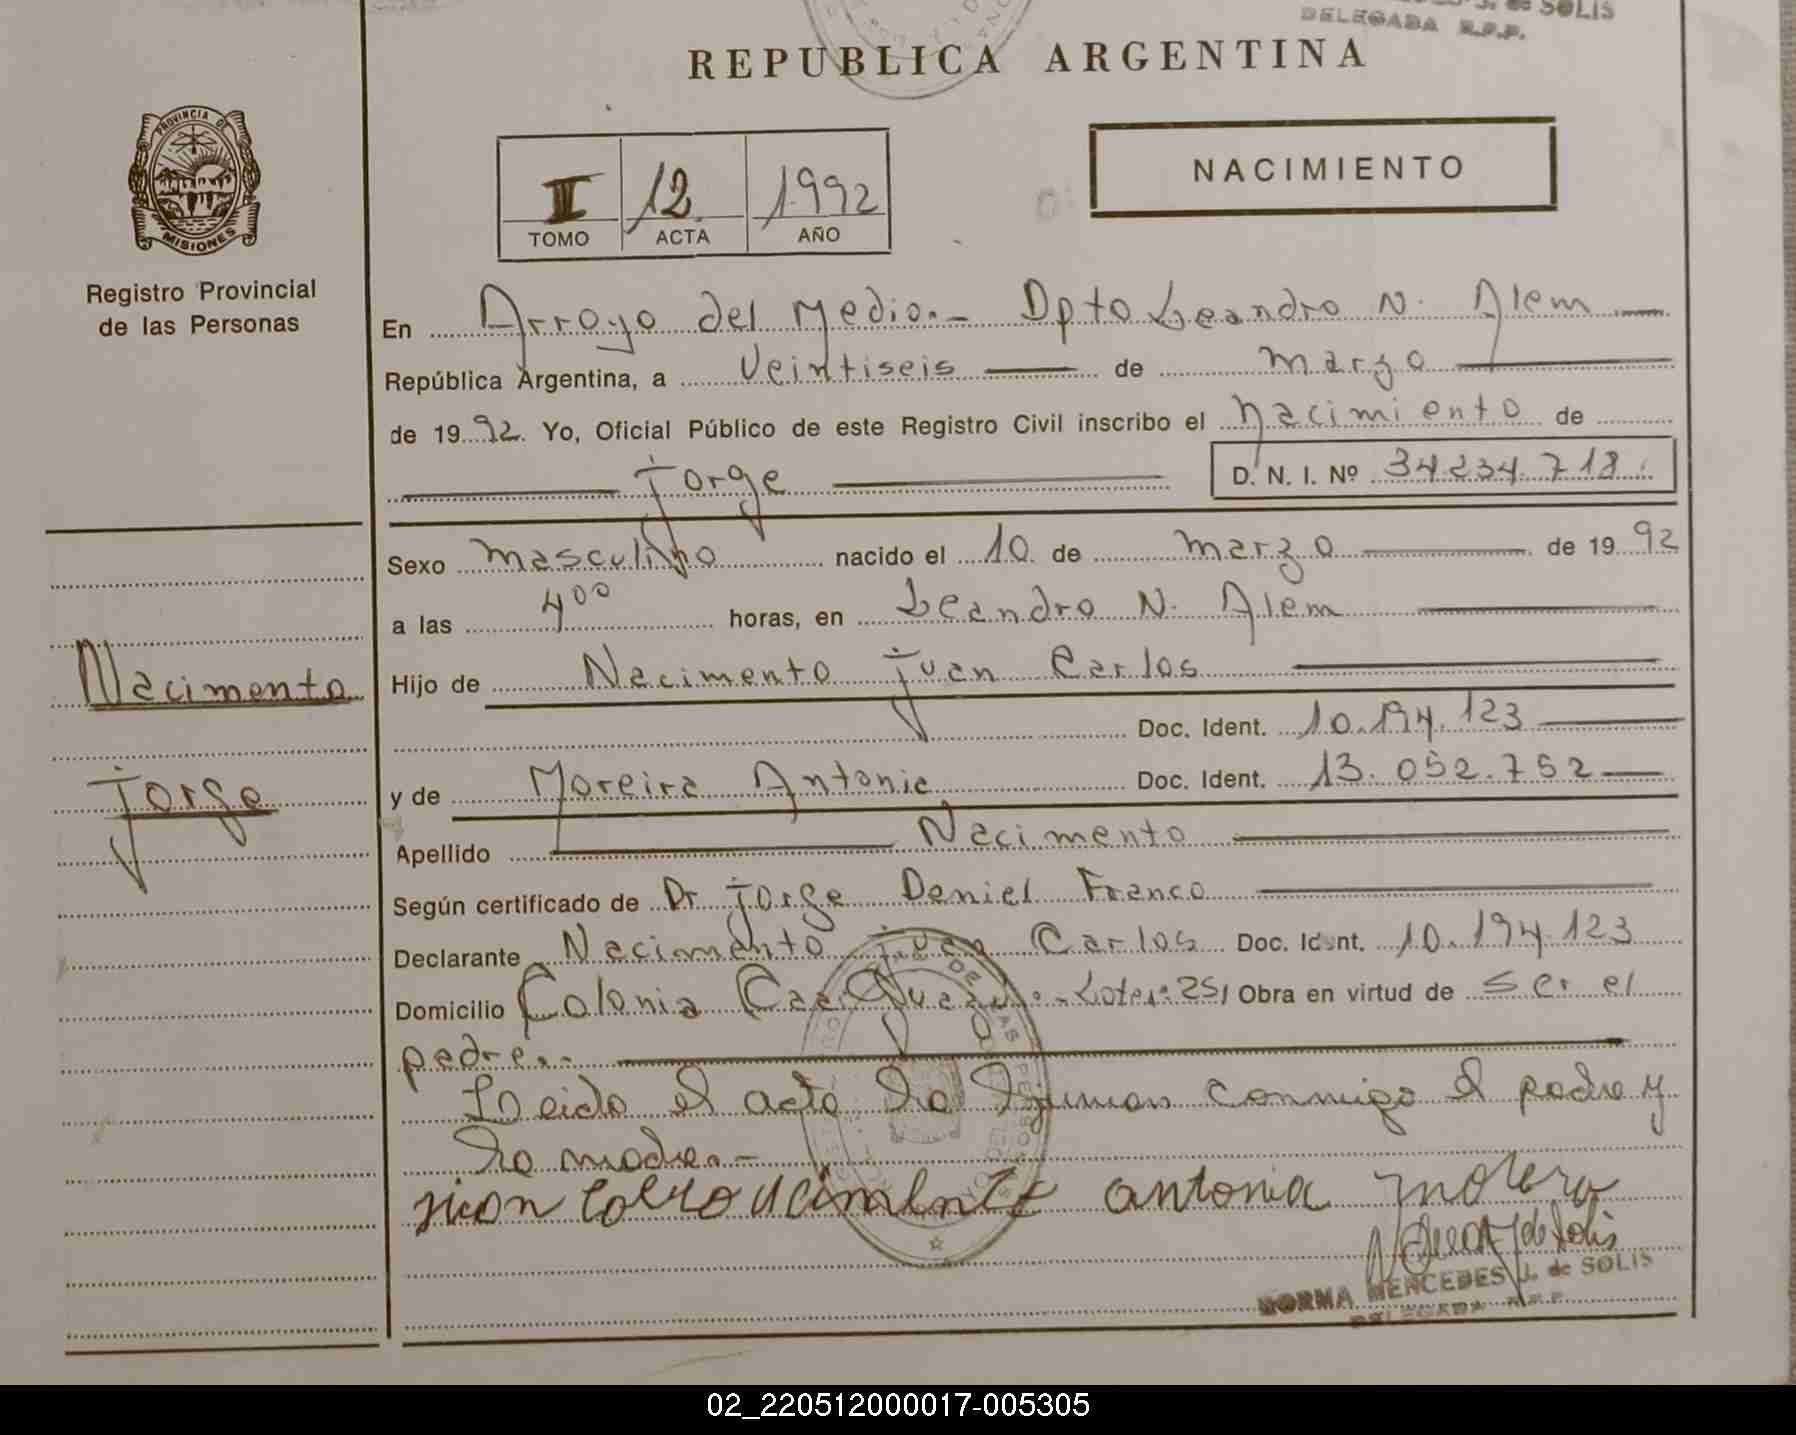 J. de SOLIS
DELEGADA R.P.P.
REPUBLICA ARGENTINA
PROVINCIA DE
MISIONES
Registro Provincial
de las Personas
II 12 1992
TOMO ACTA AÑO
NACIMIENTO
En Arroyo del Medio.- Dpto Leandro N. Alem
República Argentina, a veintiseis de marzo
de 1992. Yo, Oficial Público de este Registro Civil inscribo el nacimiento de
Jorge D. N. I. Nº 34.234.718
Sexo masculino nacido el 10 de marzo de 1992
a las 4⁰⁰ horas, en Leandro N. Alem
Nacimento
Jorge
Hijo de Nacimento Juan Carlos
Doc. Ident. 10.194.123
y de Moreira Antonia Doc. Ident. 13.052.752
Apellido Nacimento
Según certificado de Dr Jorge Daniel Franco
Declarante Nacimento Juan Carlos Doc. Ident. 10.194.123
Domicilio Colonia Caá Lote: 251 Obra en virtud de ser el
padre.-
Leida el acta la firman conmigo el padre y
la madre.-
antonia
NORMA MERCEDES J. de SOLIS
DELEGADA R.P.P.
02_220512000017-005305